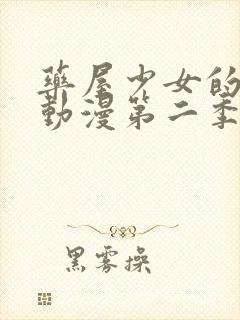 藥屋少女的
動漫第二季
黑雾操